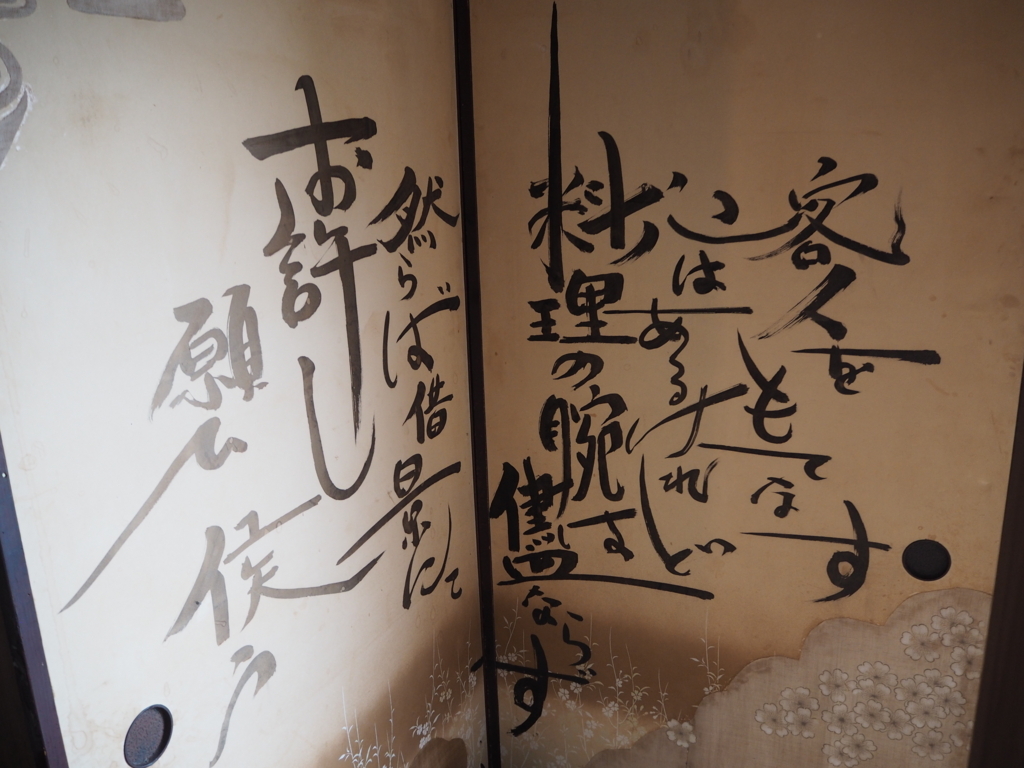 客人を
もてなす
心はあるなれど
料理の腕ま
儘ならず
然らば借景にて
お許し
願ひ候う